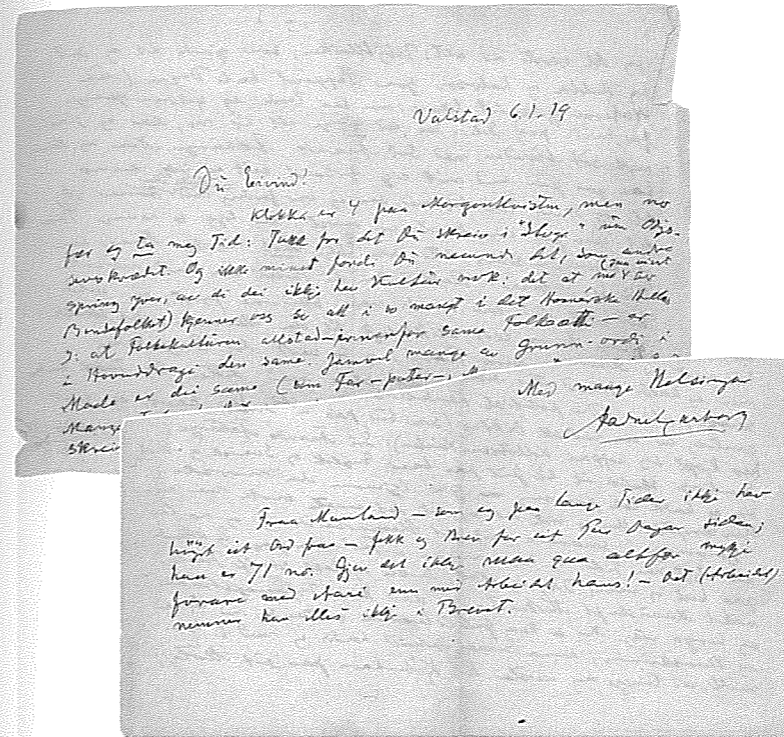 Valstad 6.1.19
Du Eivind!
Klokka er 4 paa Morgonkvisten, men no
fær eg ta meg Tid: Takk for det Du skreiv i om
Og ikkje minst fordi Du nemnde det, som andre
spring yver, av di dei ikkje hev Kultur nok: det at me
Bondefolket) kjenner oss so att i so mangt i det Homerske
ɔ: at Folkekulturen allstad innanfor same Folkeætt – er
i Hovuddragi den same. Jamvel mange av Grunn-ordi i
Maale er dei same (som Far – pater –
Mange
skrei
Med mange Helsingar
Aadne Garborg
Fraa – som eg paa lange Tider ikkje hev
høyrt eit Ord fraa – fekk eg Brev for eit Par Dagar sidan;
han er 71 no. Gjer det ikkje altfor mykje
med enn med Arbeidet hans! – Det (Arbeidet)
nemner han elles ikkje i Brevet.